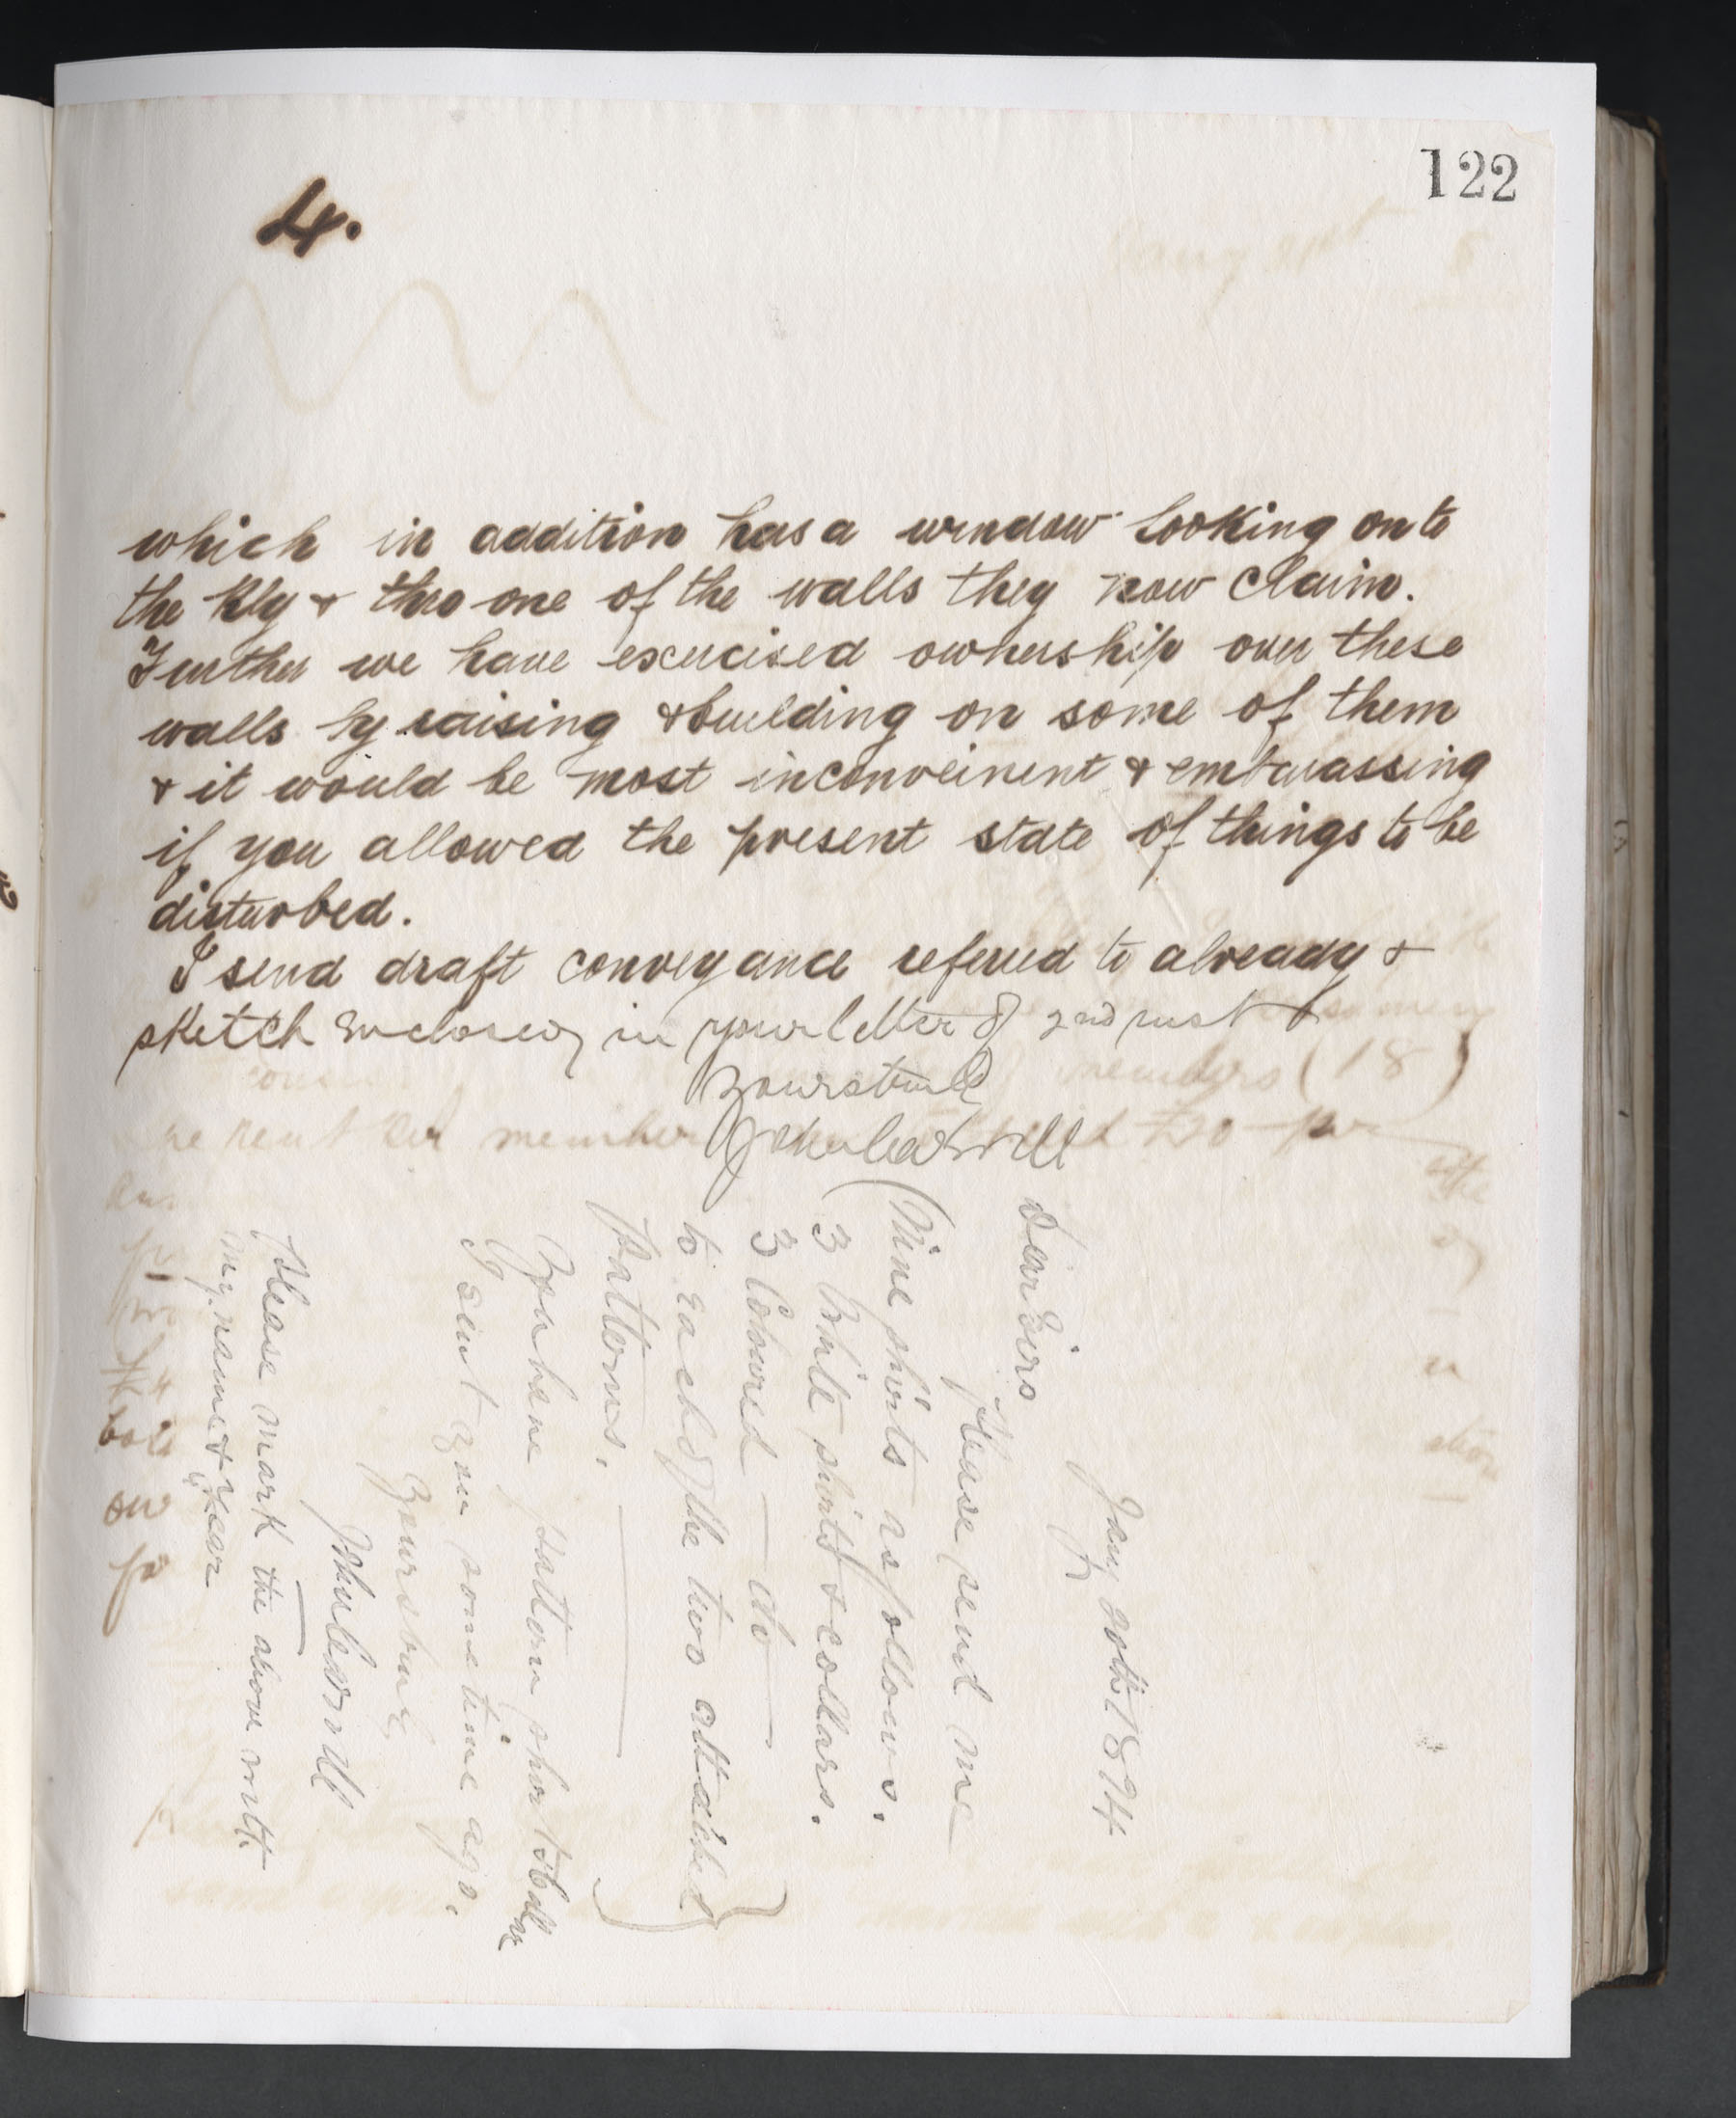 122
4.
which in addition has a window looking on to
the Rly & thro one of the walls they now claim.
Further we have excercised ownership over these
walls by raising & building on some of them
& it would be most inconveinent & embarassing
if you allowed the present state of things to be
disturbed.
I send draft conveyance referred to already &
sketch enclosed in your letter of 2nd inst
Yours truly
Jany 20th 1894
Dear Sirs
Please send me
Nine shirts as follows.
3 White shirts & collars.
3 Coloured — do —
to each of the two attached
patterns.
You have pattern shirt & collar
I sent you some time ago.
Yours truly
Please mark the above with
my name & year
members (18)